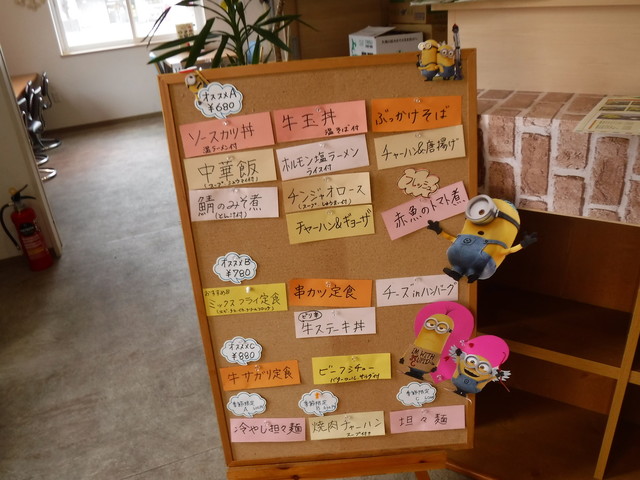 オススメA
¥680
ソースカツ丼
塩ラーメン付
牛玉丼
塩そば付
ぶっかけそば
中華飯
ホルモン塩ラーメン
ライス付
チャーハン&唐揚げ
鯖のみそ煮
チンジャオロース
赤魚のトマト煮
チャーハン&ギョーザ
オススメB
¥780
おすすめ!!
ミックスフライ定食
串カツ定食
チーズinハンバーグ
牛ステーキ丼
オススメC
¥880
牛サガリ定食
ビーフシチュー
冷やし担々麺
焼肉チャーハン
スープ付き
担々麺